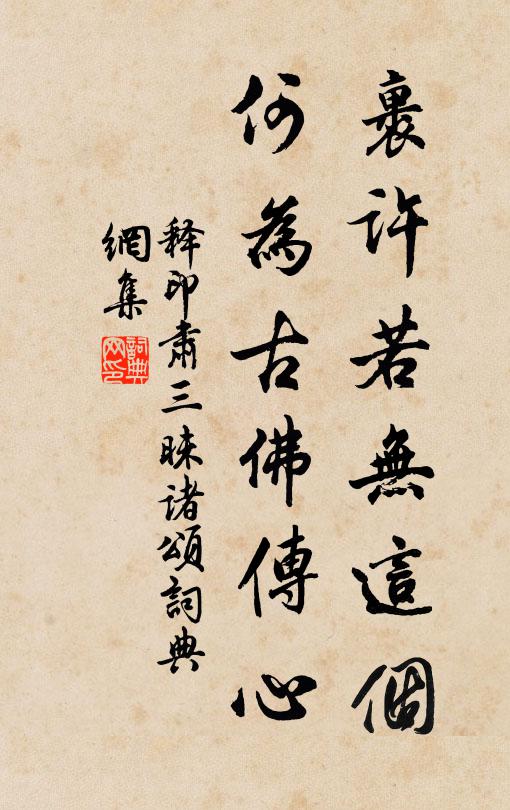 裏許若無這個
何為古佛傳心
释印肅三昧诸頌詞典
網集
詞典
网印